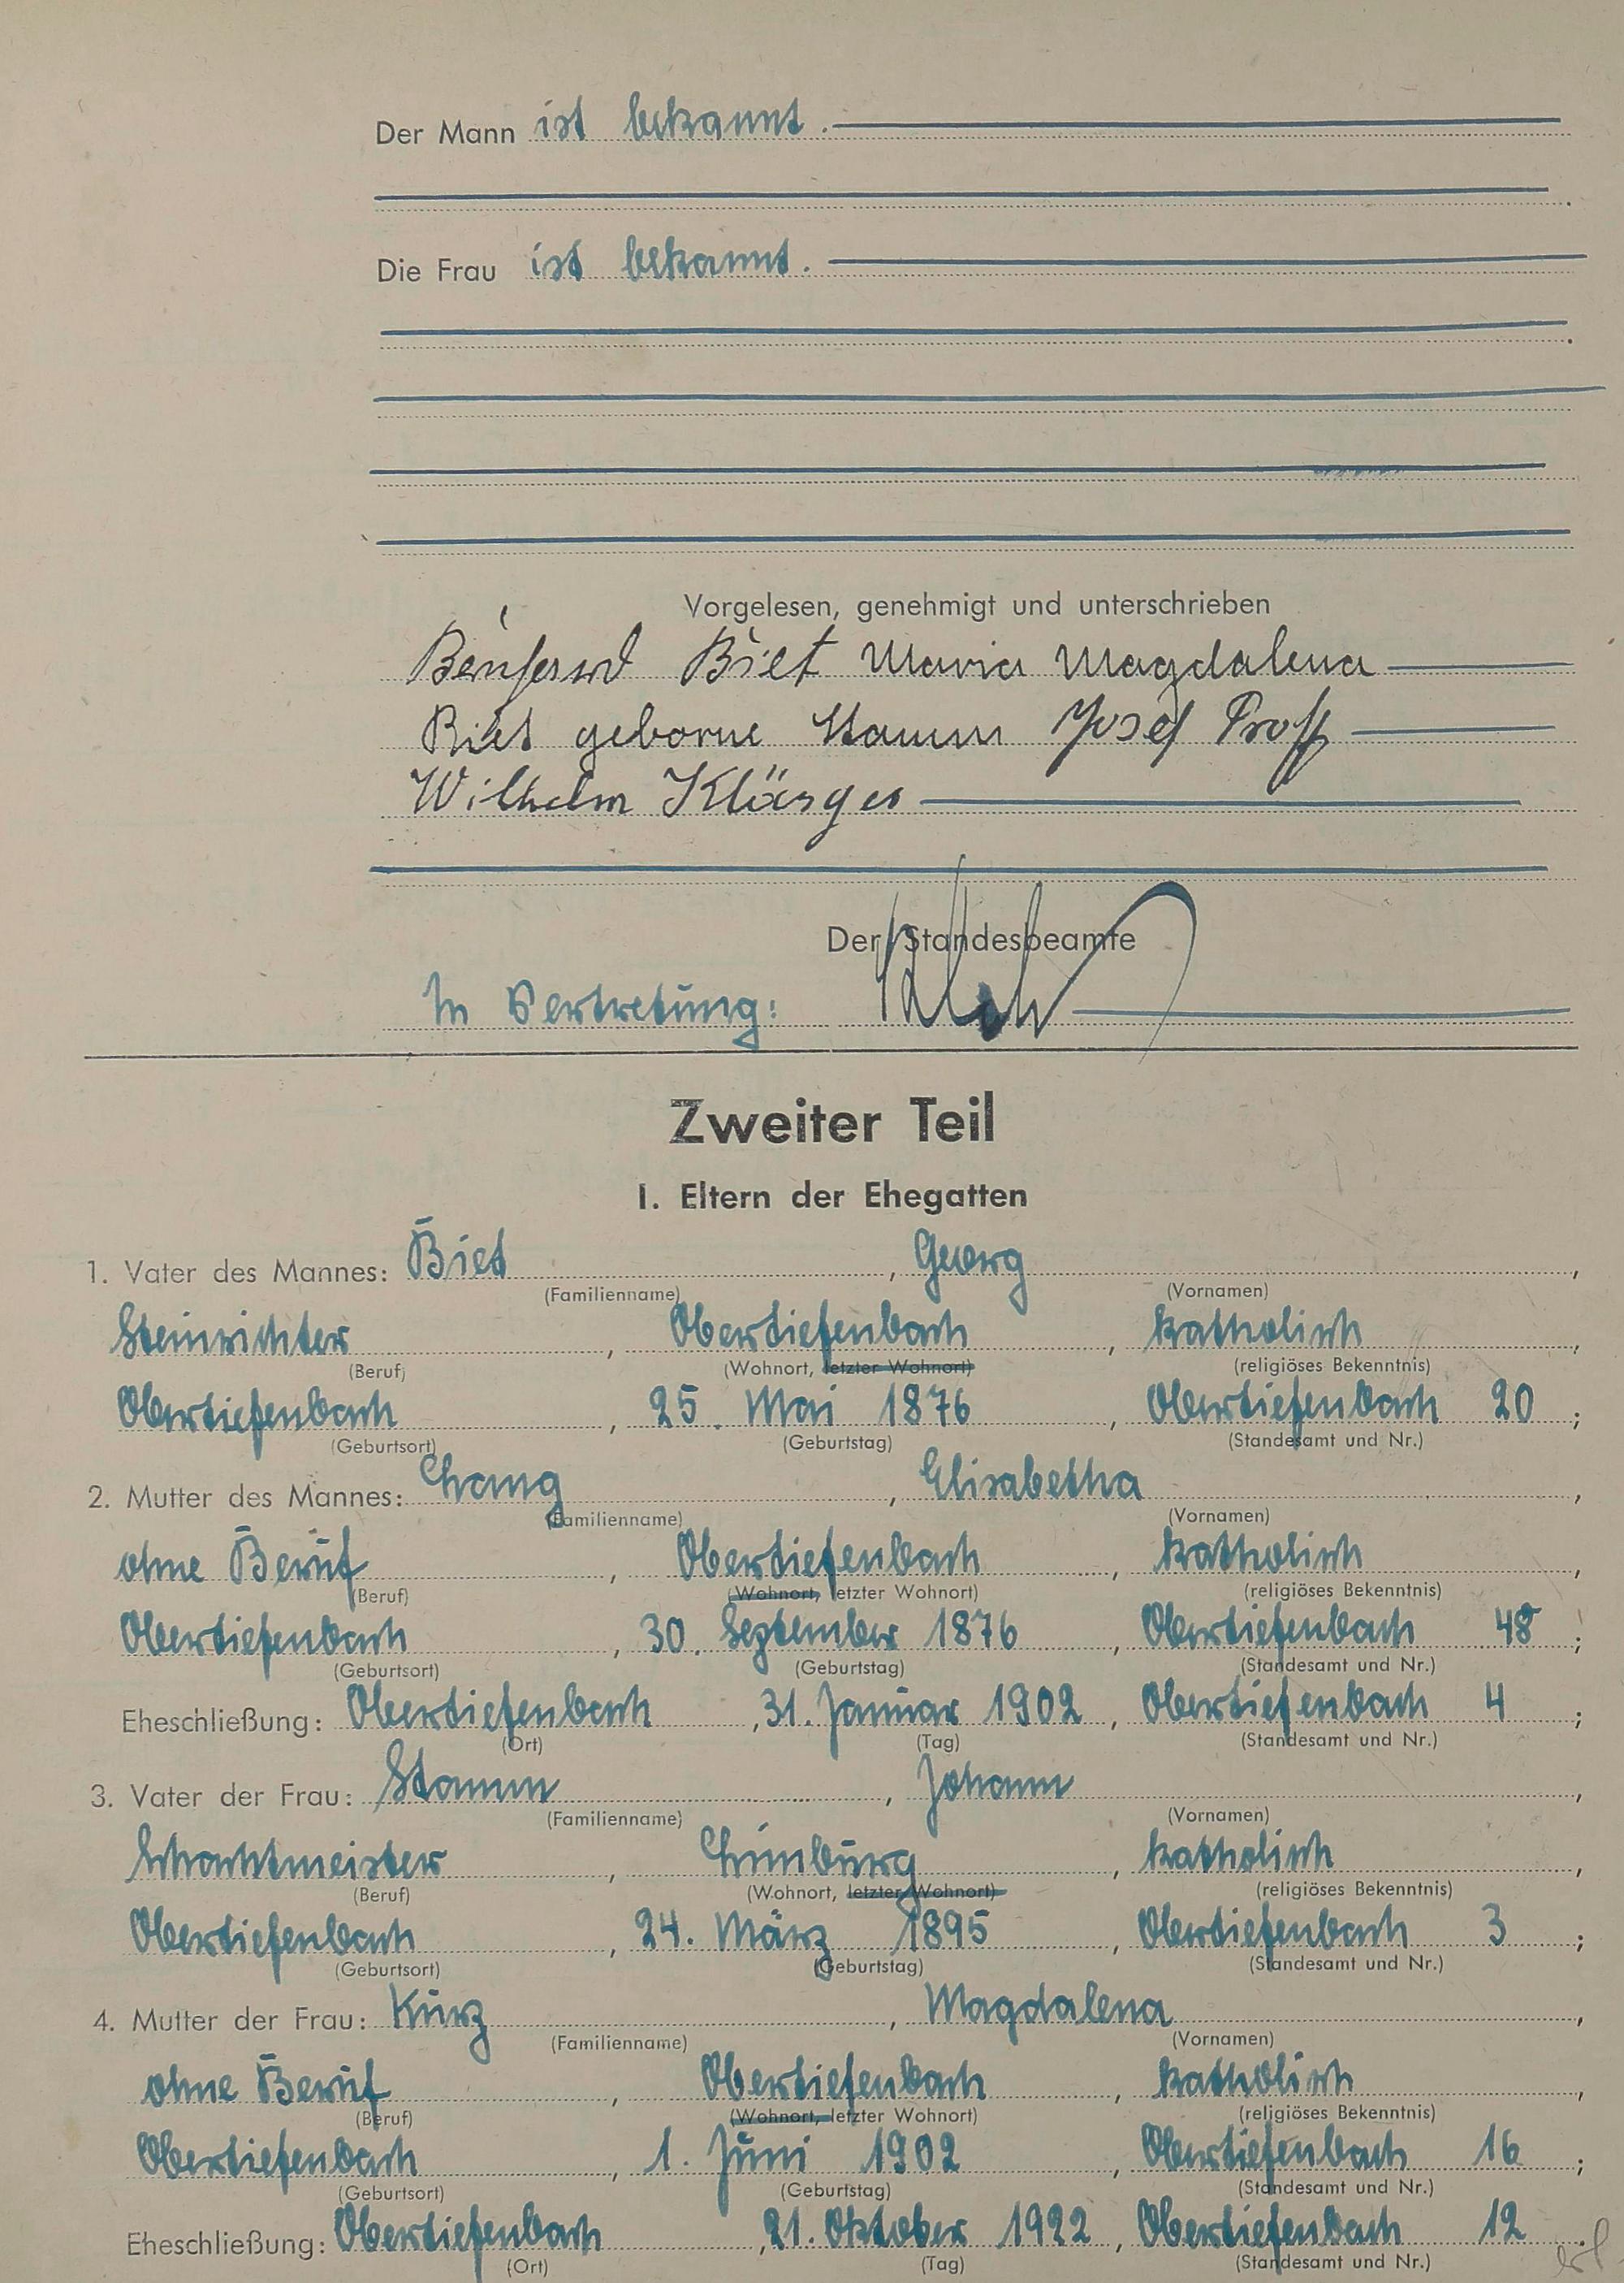 Der Mann ist bekannt.
Die Frau ist bekannt.
Vorgelesen, genehmigt und unterschrieben
Bernhard Biet Maria Magdalena
Biet geborne Stamm Josef Proff
Wilhelm Kläsges
Der Standesbeamte
In Vertretung:
Zweiter Teil
I. Eltern der Ehegatten
1. Vater des Mannes: Biet, Georg,
(Familienname) (Vornamen)
Steinrichter, Obertiefenbach, katholisch,
(Beruf) (Wohnort, letzter Wohnort) (religiöses Bekenntnis)
Obertiefenbach, 25. Mai 1876, Obertiefenbach 20;
(Geburtsort) (Geburtstag) (Standesamt und Nr.)
2. Mutter des Mannes: Lang, Elisabetha,
(Familienname) (Vornamen)
ohne Beruf, Obertiefenbach, katholisch,
(Beruf) (Wohnort, letzter Wohnort) (religiöses Bekenntnis)
Obertiefenbach, 30. September 1876, Obertiefenbach 48;
(Geburtsort) (Geburtstag) (Standesamt und Nr.)
Eheschließung: Obertiefenbach, 31. Januar 1902, Obertiefenbach 4;
(Ort) (Tag) (Standesamt und Nr.)
3. Vater der Frau: Stamm, Johann,
(Familienname) (Vornamen)
Schachtmeister, Limburg, katholisch,
(Beruf) (Wohnort, letzter Wohnort) (religiöses Bekenntnis)
Obertiefenbach, 24. März 1895, Obertiefenbach 3;
(Geburtsort) (Geburtstag) (Standesamt und Nr.)
4. Mutter der Frau: Kurz, Magdalena,
(Familienname) (Vornamen)
ohne Beruf, Obertiefenbach, katholisch,
(Beruf) (Wohnort, letzter Wohnort) (religiöses Bekenntnis)
Obertiefenbach, 1. Juni 1902, Obertiefenbach 16;
(Geburtsort) (Geburtstag) (Standesamt und Nr.)
Eheschließung: Obertiefenbach, 21. Oktober 1922, Obertiefenbach 12
(Ort) (Tag) (Standesamt und Nr.)